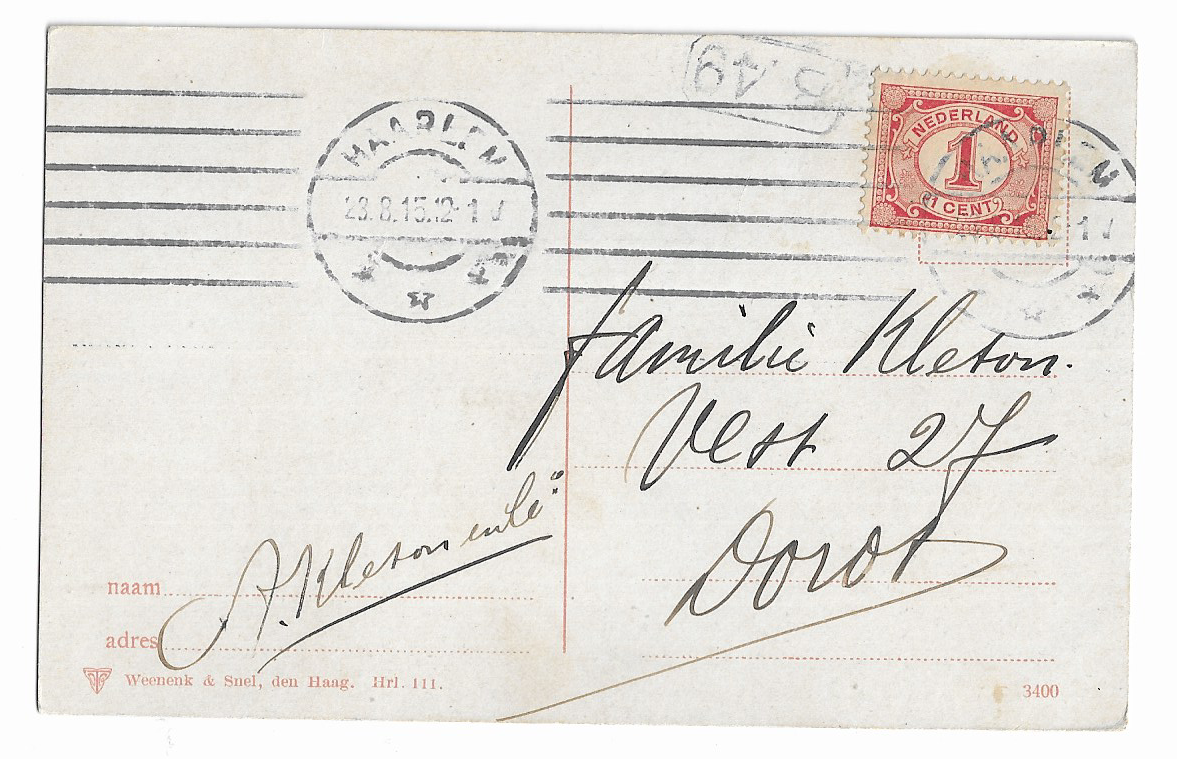 49
NEDERLAND
1
1 CENT
HAARLEM
23.8.15.12-1 V
Familie Kleton.
Vest 27
Dordt
naam A. Kleton
adres
Weenenk & Snel, den Haag. Hrl. 111.
3400